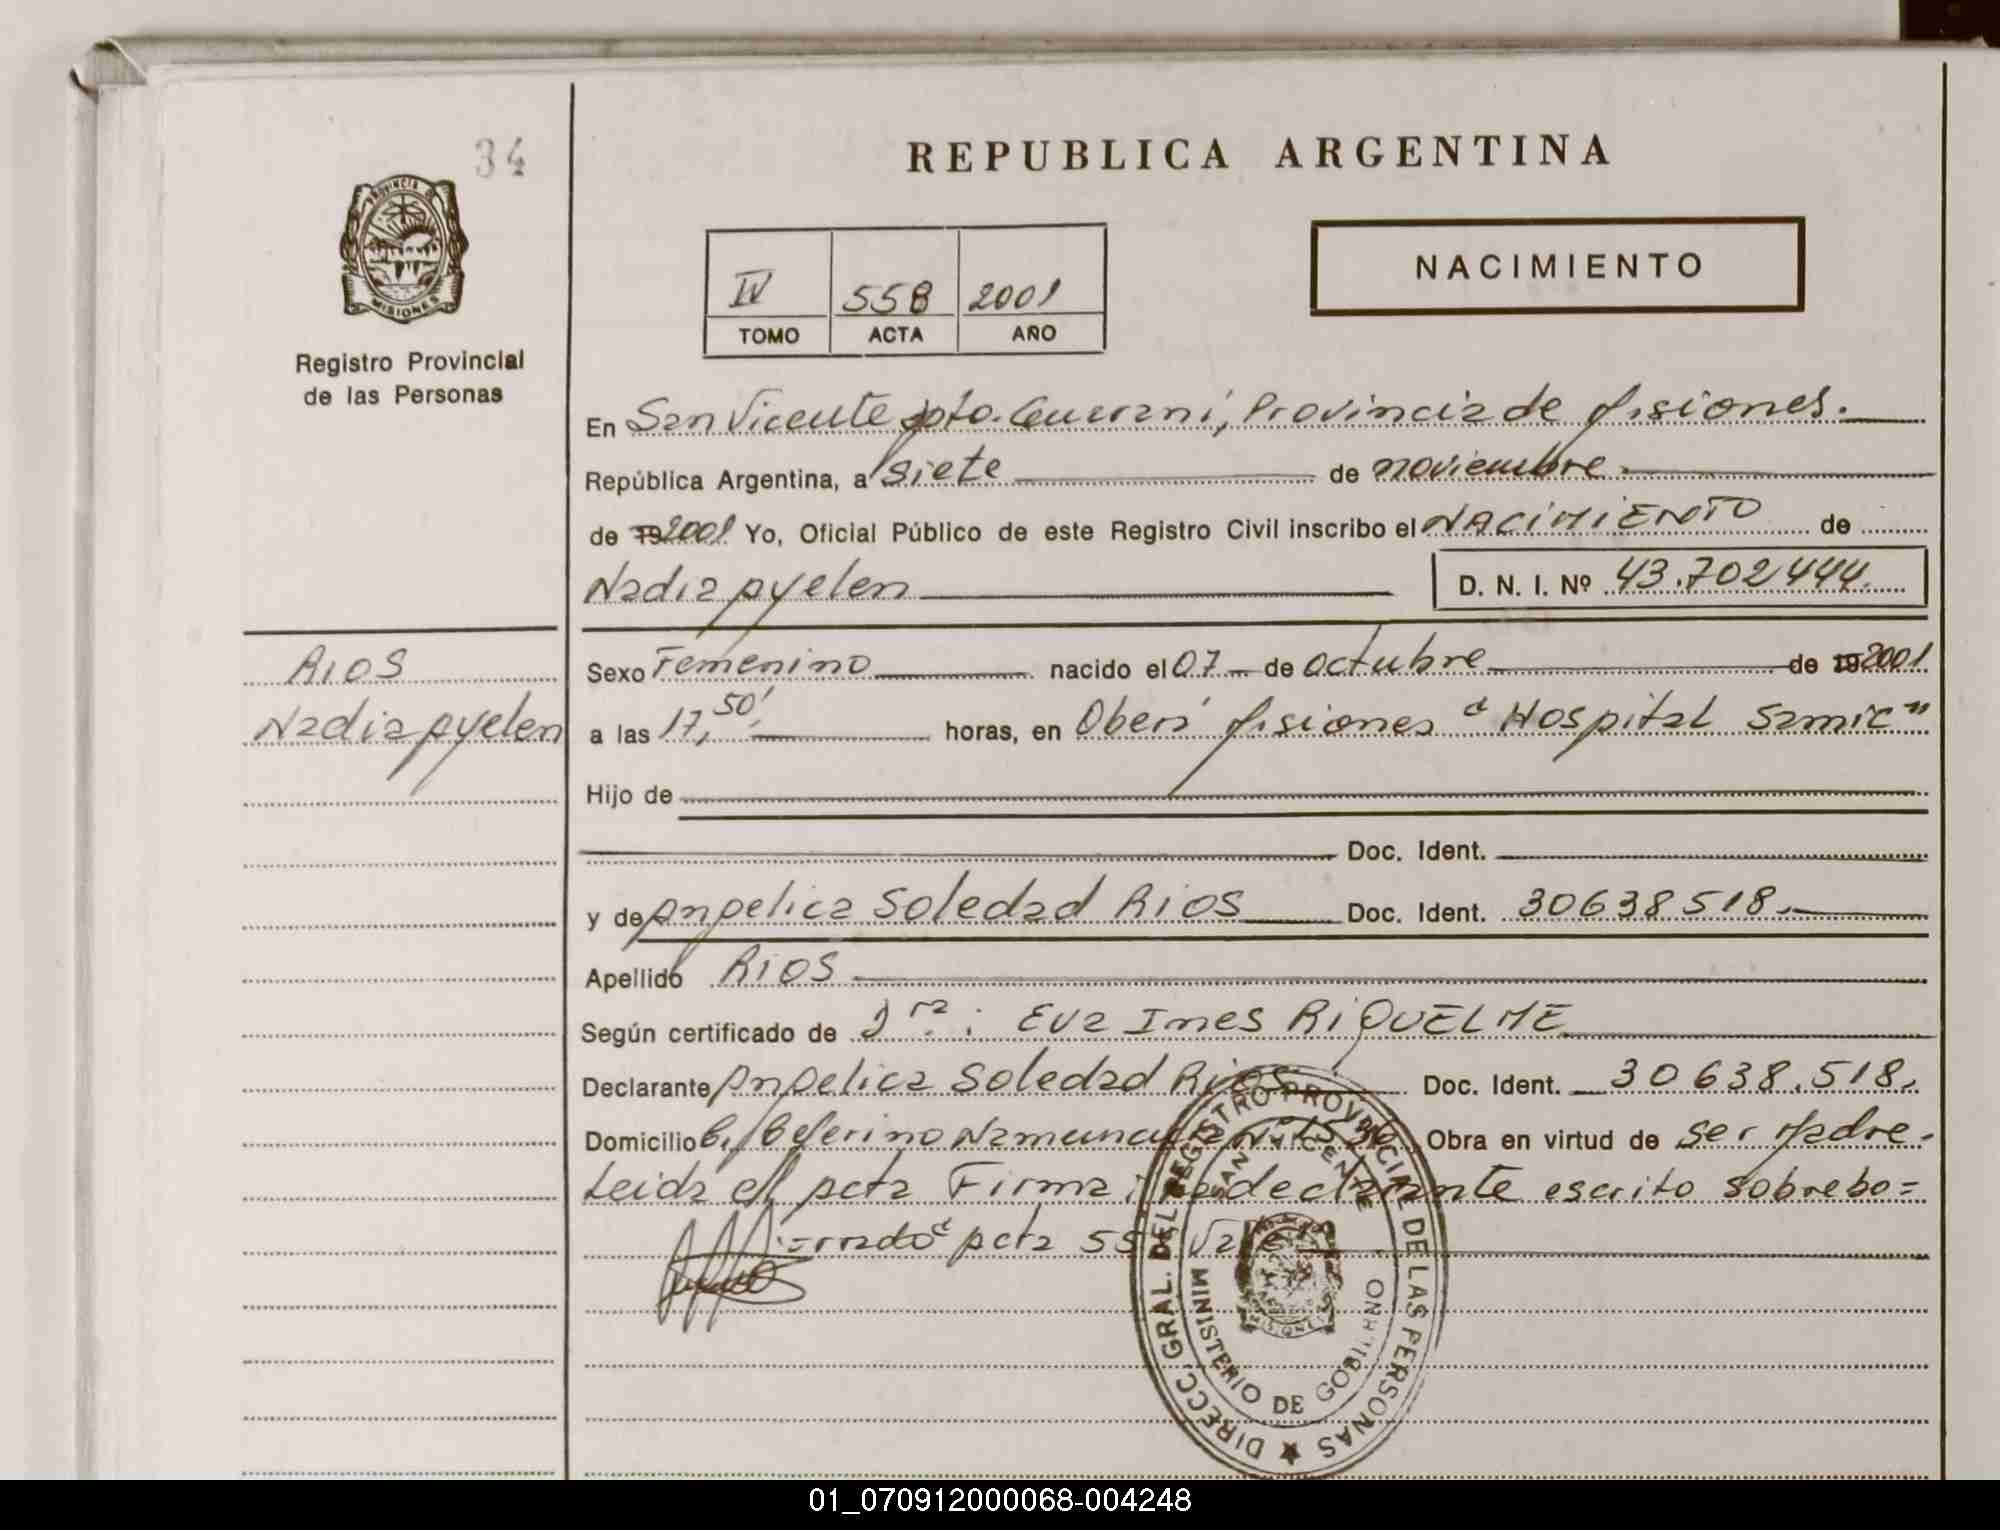 34
REPUBLICA ARGENTINA
PROVINCIA DE
MISIONES
Registro Provincial
de las Personas
IV 558 2001
TOMO ACTA AÑO
NACIMIENTO
En San Vicente Dpto. Guaraní, Provincia de Misiones.
República Argentina, a siete de noviembre
de 19 2001 Yo, Oficial Público de este Registro Civil inscribo el NACIMIENTO de
Nadia Ayelen D. N. I. Nº 43.702444.
RIOS
Nadia Ayelen
Sexo Femenino nacido el 07 de octubre de 19 2001
a las 17,50' horas, en Oberá Misiones "Hospital Samic"
Hijo de
Doc. Ident.
y de Angelica Soledad Rios Doc. Ident. 30638518.
Apellido RIOS
Según certificado de Dra.: Eva Ines RIQUELME
Declarante Angelica Soledad Rios Doc. Ident. 30638.518.
Domicilio Ceferino Obra en virtud de ser Madre.
Leida el acta Firma la declarante escrito sobrebo=
rrado" acta 55 Vale
DIRECC. GRAL. DEL REGISTRO PROVINCIAL DE LAS PERSONAS
SAN VICENTE
MISIONES
MINISTERIO DE GOBIERNO
01_070912000068-004248